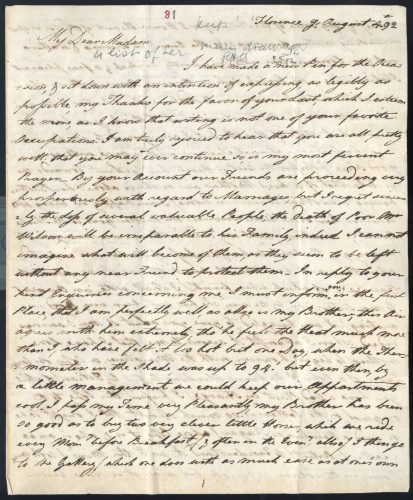 91 keep
Florence 9 August 92
My Dear Madam
a list of her many drawings
I have made a new Pen for the Occa
sion & set down with an intention of expressing as legibly as
possible my Thanks for the favor of your last, which I esteem
the more, as I know that writing is not one of your favorite
Occupations. I am truly rejoiced to hear that you are all pretty
well, that you may ever continue so, is my most fervent
Prayer. By your Account our Friends are proceeding very
prosperously with regard to Marriages, but I regret sincere
ly the loss of several valuable People, the death of Poor Mrs
Wilson, will be irreparable to his Family, indeed I cannot
imagine what will become of them, as they seem to be left
without any near Friend to protect them - In reply to your
kind Enquiries concerning me, I must inform you in the first
Place that I am perfectly well, as also is my Brother, this Air
agrees with him extremely, tho he felt the heat much more
than I, who have felt it too hot but one Day, when the Ther
mometer in the Shade was up to 94. but even then, by
a little management, we could keep our Appartments
cool, I pass my Time very Pleasantly, my Brother has been
so good as to buy two very clever little Horses, which we ride
every Morng before Breakfast, (& often in the Eveng also) I then go
to the Gallery, which one does with as much ease as at ones own